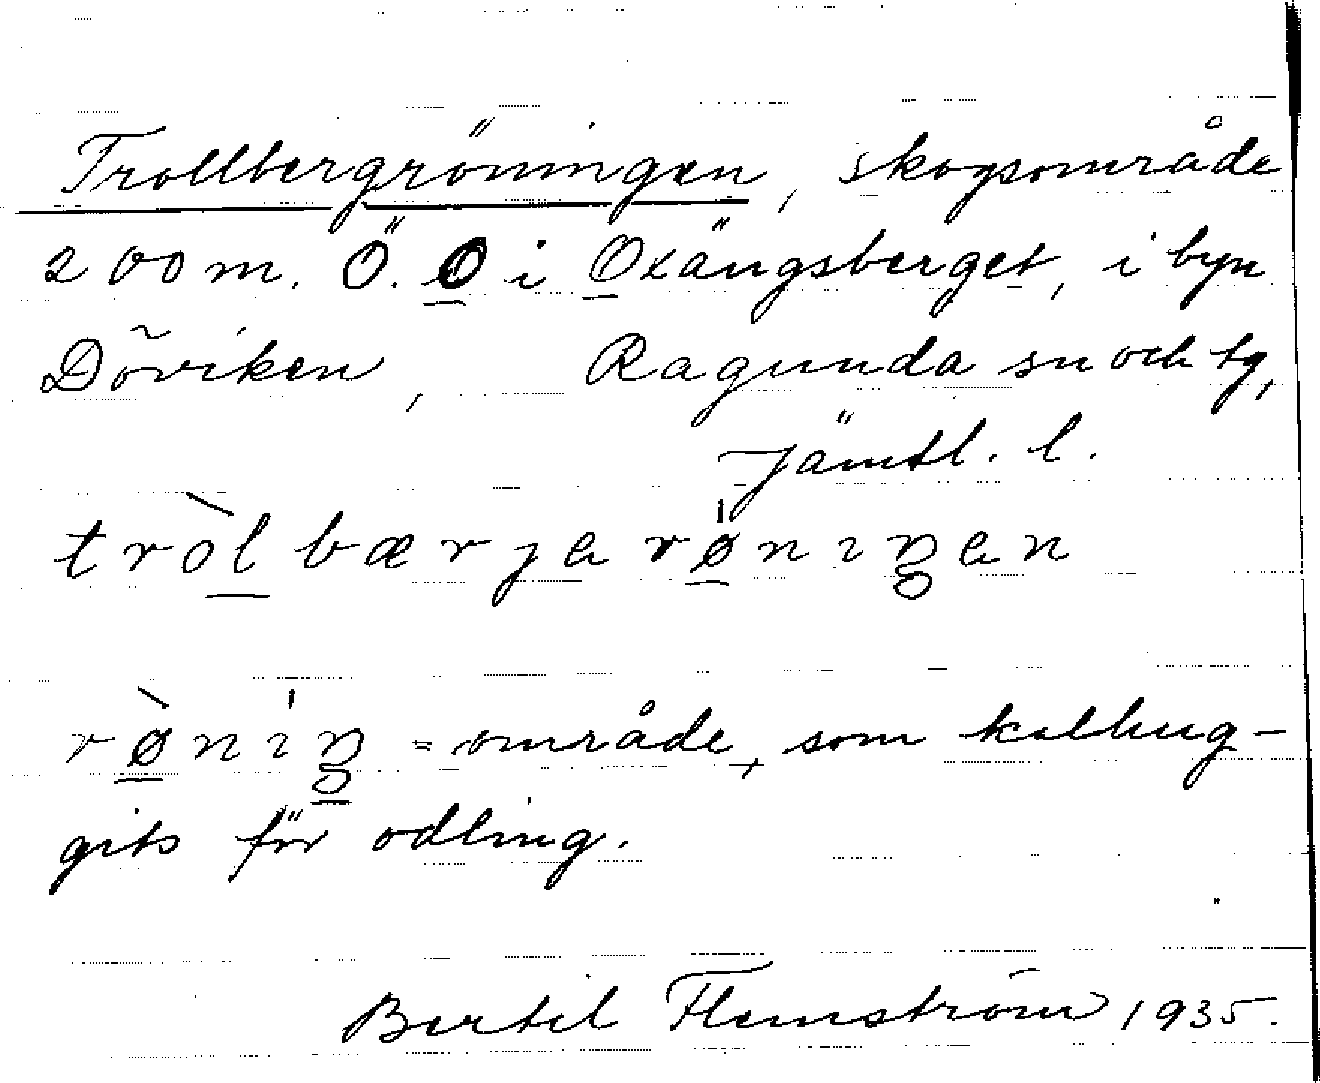 Trollbergröningen, skogsområde
200 m. Ö. O i Oxängsberget, i byn
Döviken, Ragunda sn och tg,
Jämtl. l.
tròl bærjarø̍niŋen
rø̀ni̍ŋ = område, som kalhug-
gits för odling.
Bertil Flemström 1935.